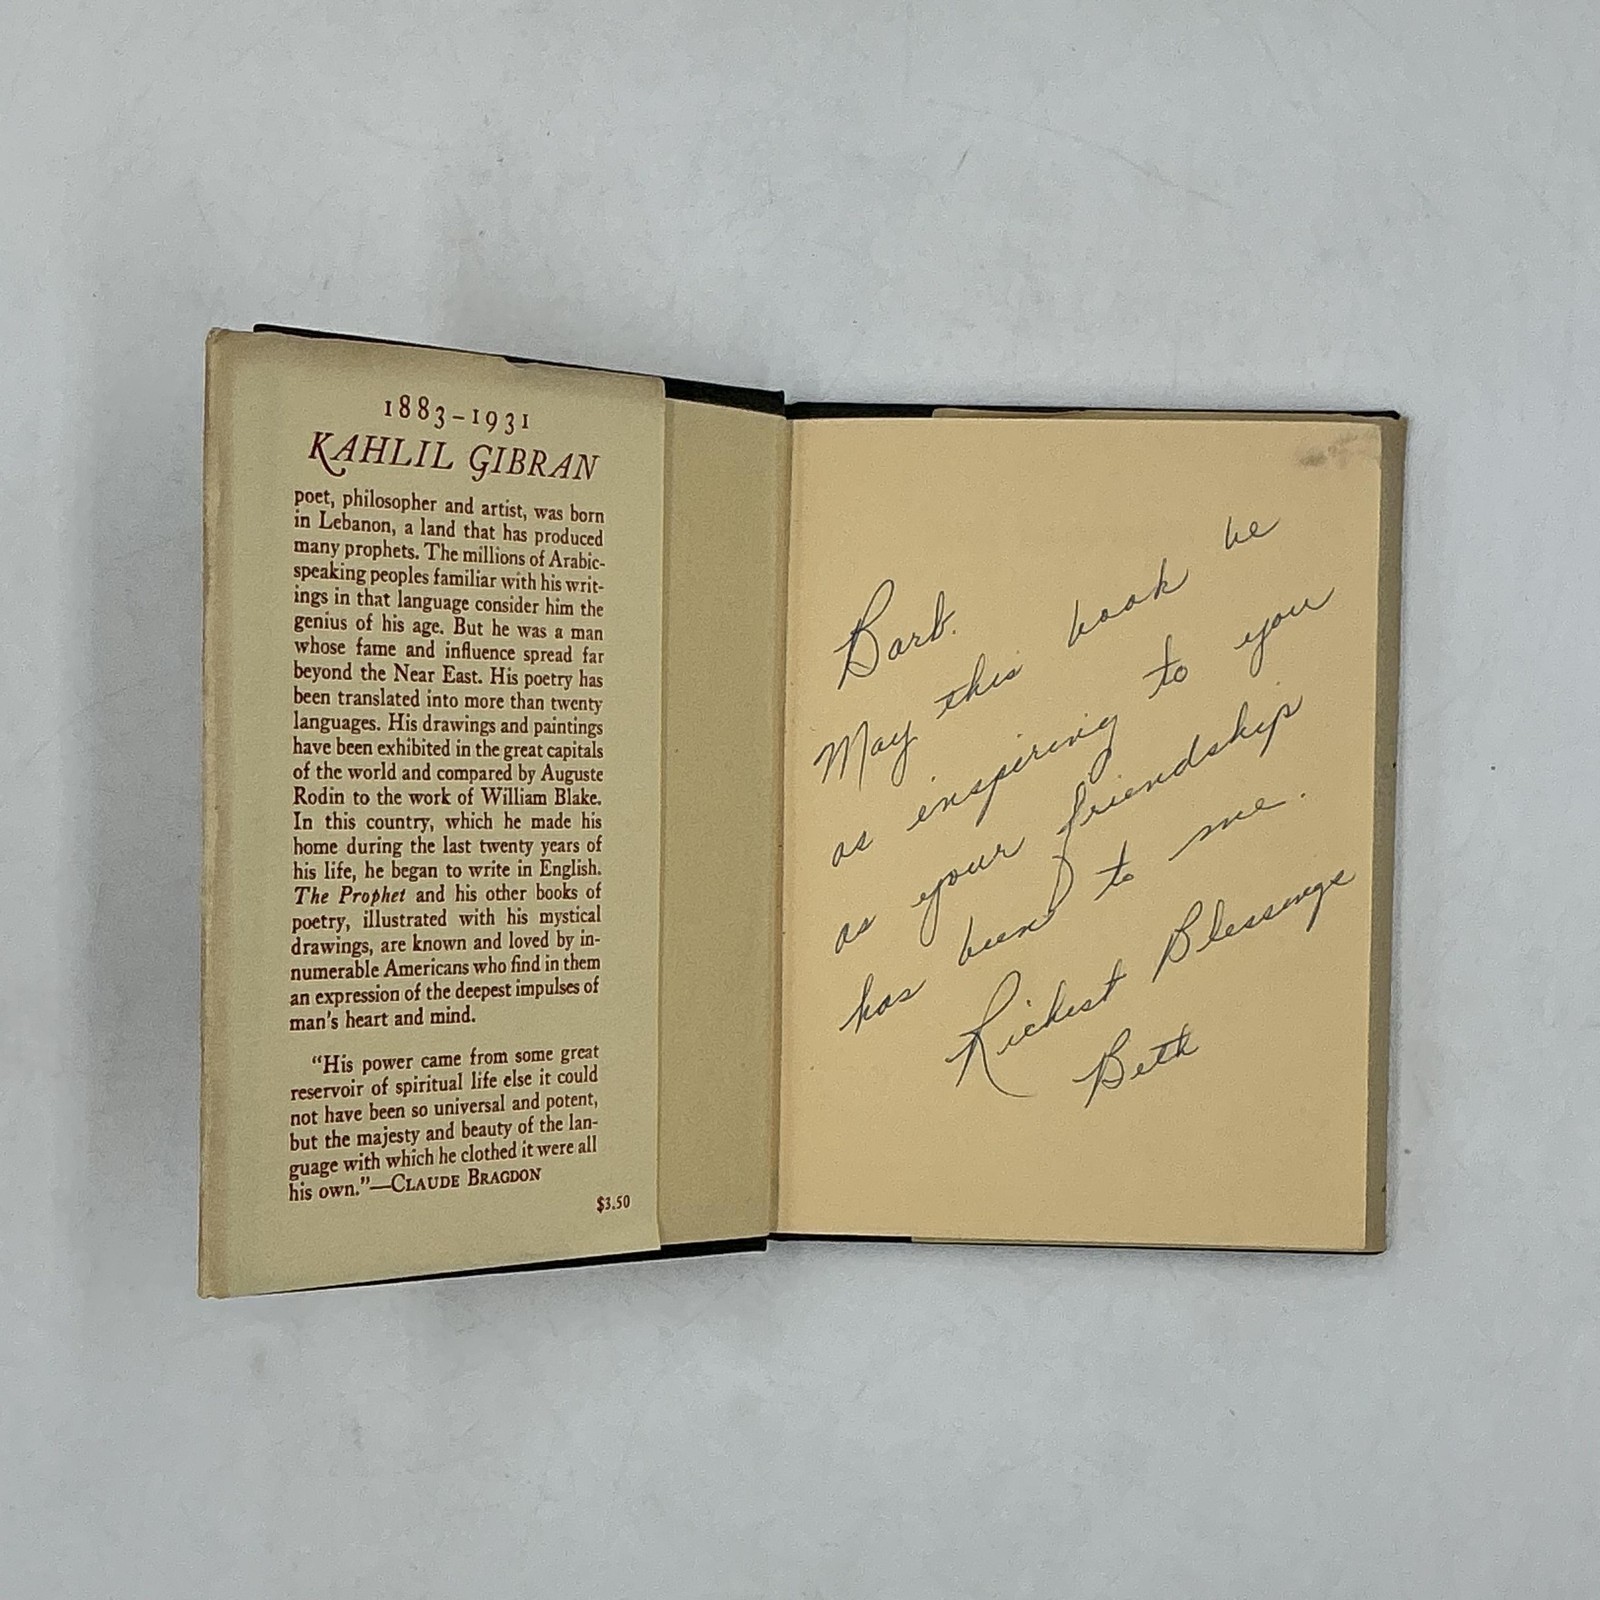 1883–1931
KAHLIL GIBRAN
poet, philosopher and artist, was born
in Lebanon, a land that has produced
many prophets. The millions of Arabic-
speaking peoples familiar with his writ-
ings in that language consider him the
genius of his age. But he was a man
whose fame and influence spread far
beyond the Near East. His poetry has
been translated into more than twenty
languages. His drawings and paintings
have been exhibited in the great capitals
of the world and compared by Auguste
Rodin to the work of William Blake.
In this country, which he made his
home during the last twenty years of
his life, he began to write in English.
The Prophet and his other books of
poetry, illustrated with his mystical
drawings, are known and loved by in-
numerable Americans who find in them
an expression of the deepest impulses of
man's heart and mind.
“His power came from some great
reservoir of spiritual life else it could
not have been so universal and potent,
but the majesty and beauty of the lan-
guage with which he clothed it were all
his own.”—CLAUDE BRAGDON
$3.50
Barb.
May this book be
as inspiring to you
as your friendship
has been to me.
Richest Blessings
Beth